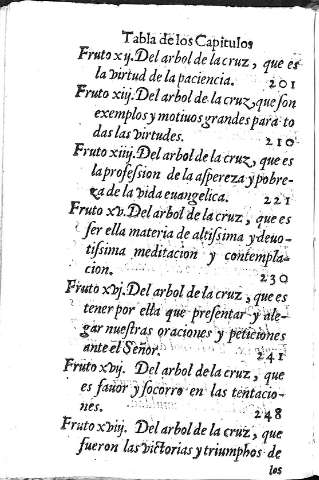 Tabla de los Capitulos
Fruto xij. Del arbol de la cruz, que es
la virtud de la paciencia. 201
Fruto xiij. Del arbol de la cruz, que son
exemplos y motiuos grandes para to
das las virtudes. 210
Fruto xiiij. Del arbol de la cruz, que es
la profession de la aspereza y pobre-
za de la vida euangelica. 221
Fruto xv. Del arbol de la cruz, que es
ser ella materia de altissima y deuo-
tissima meditacion y contempla-
cion. 230
Fruto xvj. Del arbol de la cruz, que es
tener por ella que presentar y ale-
gar nuestras oraciones y peticiones
ante el Señor. 241
Fruto xvij. Del arbol de la cruz, que
es fauor y socorro en las tentacio-
nes. 248
Fruto xviij. Del arbol de la cruz, que
fueron las victorias y triumphos de
los